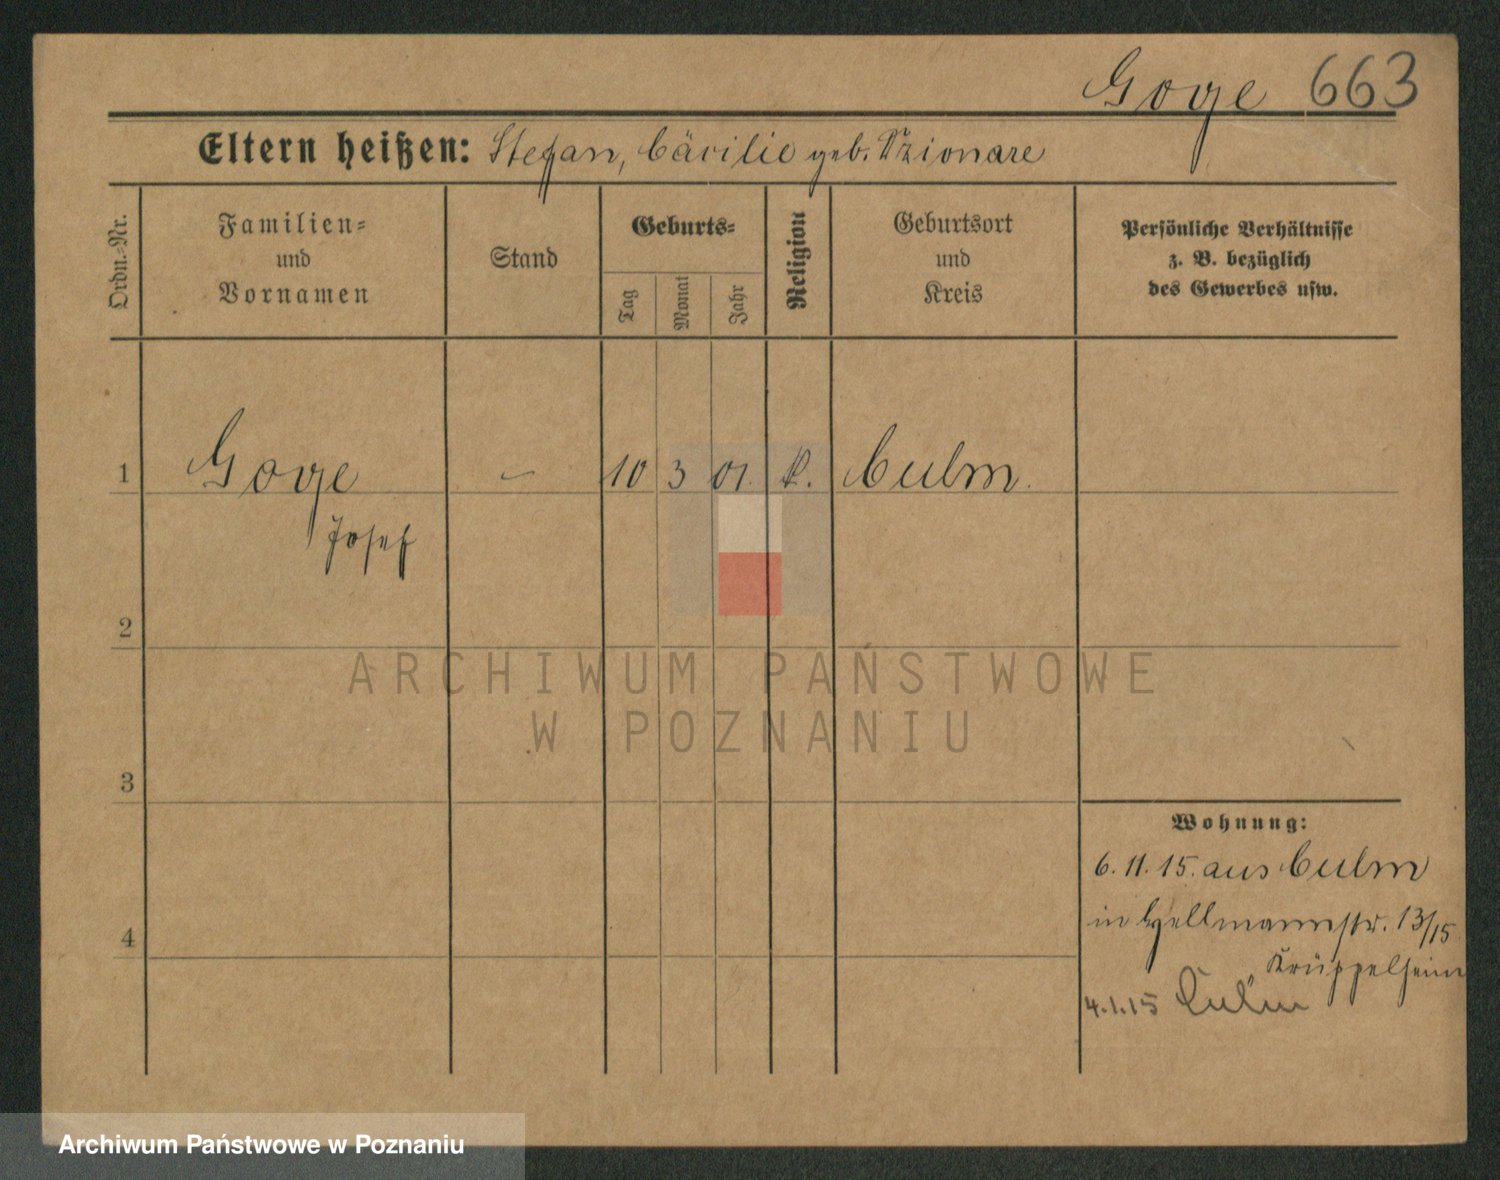 Goge 663
Eltern heißen: Stefan, Cäcilie geb.
Ordn.-Nr.
Familien-
und
Vornamen
Stand
Geburts-
Tag
Monat
Jahr
Religion
Geburtsort
und
Kreis
Persönliche Verhältnisse
z. B. bezüglich
des Gewerbes usw.
1 Goge – 10 3 01. K. Culm.
Josef
2
3
4
Wohnung:
6. 11. 15. aus Culm
in 13/15
Krüppelheim
4.1.15 Culm
ARCHIWUM PAŃSTWOWE
W POZNANIU
Archiwum Państwowe w Poznaniu